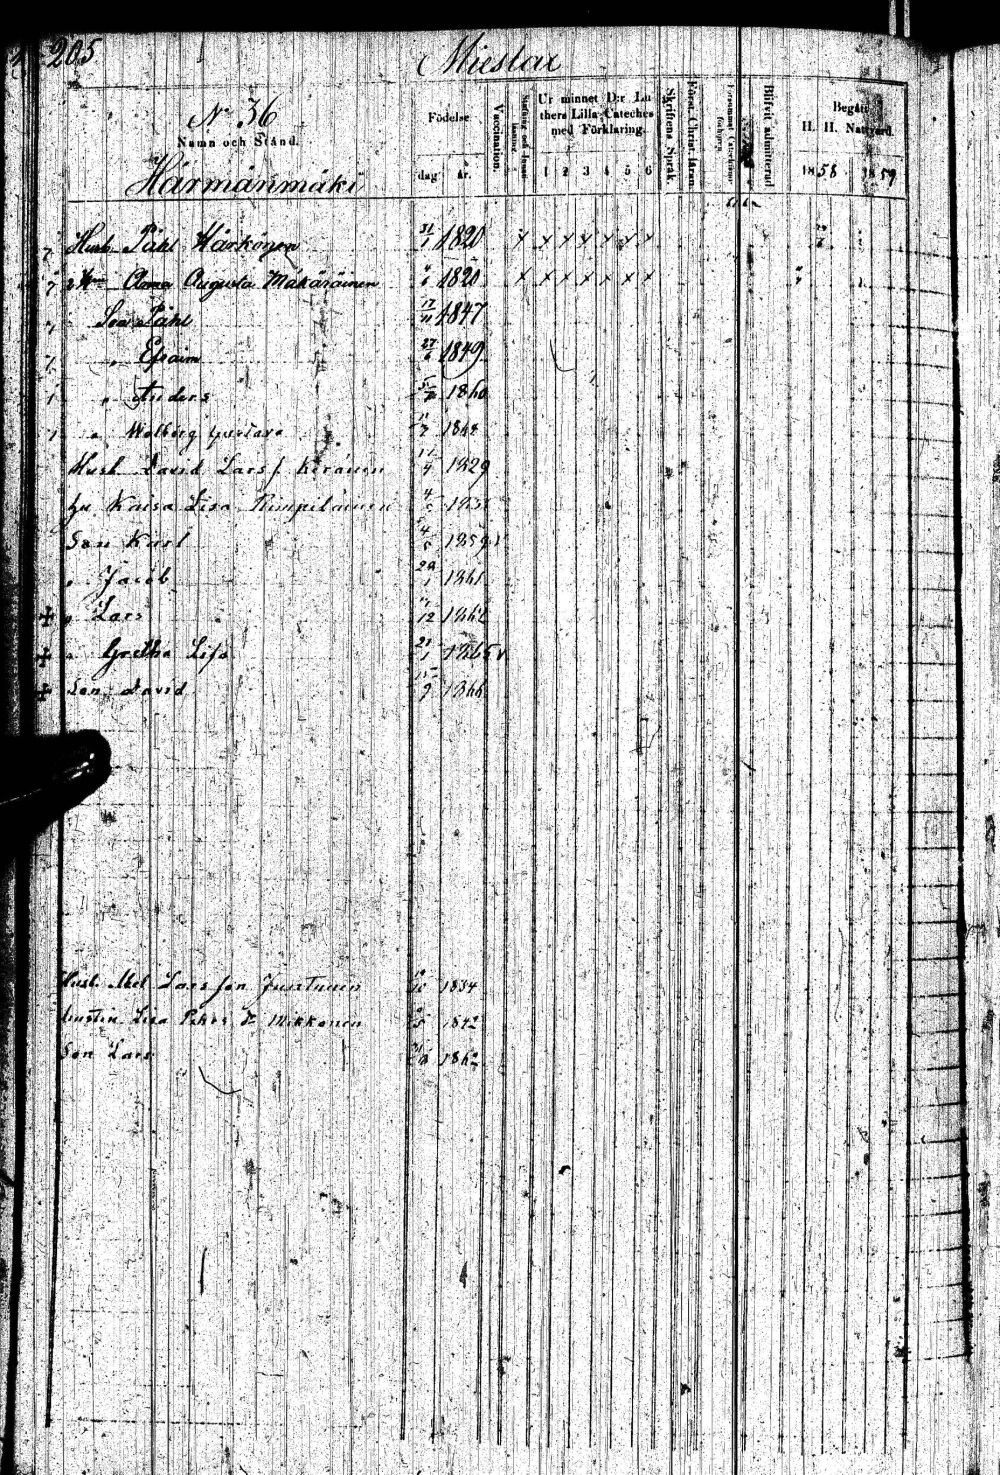 205
Mieslax
No 36
Namn och Stånd.
Härmänmäki
Födelse
dag år.
Vaccination.
Ur minnet D:r Lu
thers Lilla Cateches
med Förklaring.
1 2 3 4 5 6
Skriftens Språk.
Först. Christ. läran.
Blifvit admitterad
Begått
H. H. Nattvard.
1858 1859
Husb. Påhl Härkönen 31/1 1820 x x x x x x x
Anna Augusta Mäkäräinen 1820 x x x x x x x
Son Påhl 17/11 1847
" Efraim 27/6 1849
" Anders 1860
" Walborg Gustava
Husb David Lars s. Keränen 1829
hu Kaisa Lisa Rimpiläinen
Son Karl 4/5 1859 v
" Jacob 28/1 1861
" Lars /12 1862
" Gretha Lisa 21/1 1865 v
Son David /9 1866
Husb. Abel Lars son Juntunen /10 1834
hustru Lisa Pehrs dr Mikkonen /5 1842
Son Lars 1862